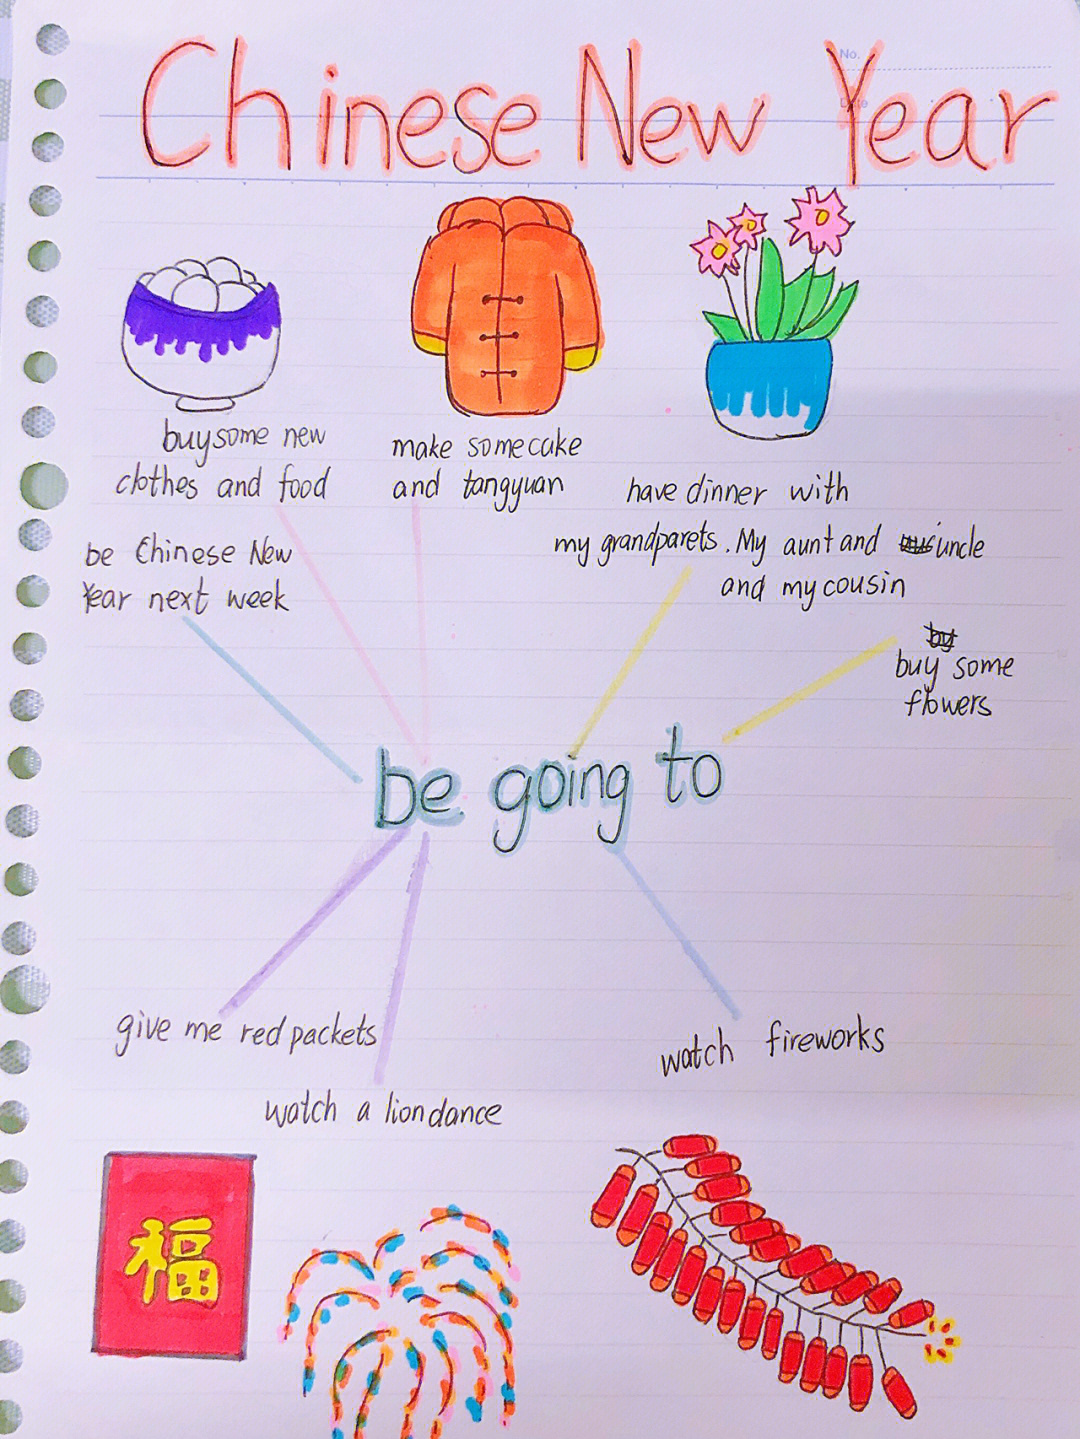 No.
Date
Chinese New Year
buy some new
clothes and food
make some cake
and tangyuan
have dinner with
my grandparets. My aunt and uncle
and my cousin
be Chinese New
Year next week
buy some
flowers
be going to
give me red packets
watch fireworks
watch a lion dance
福